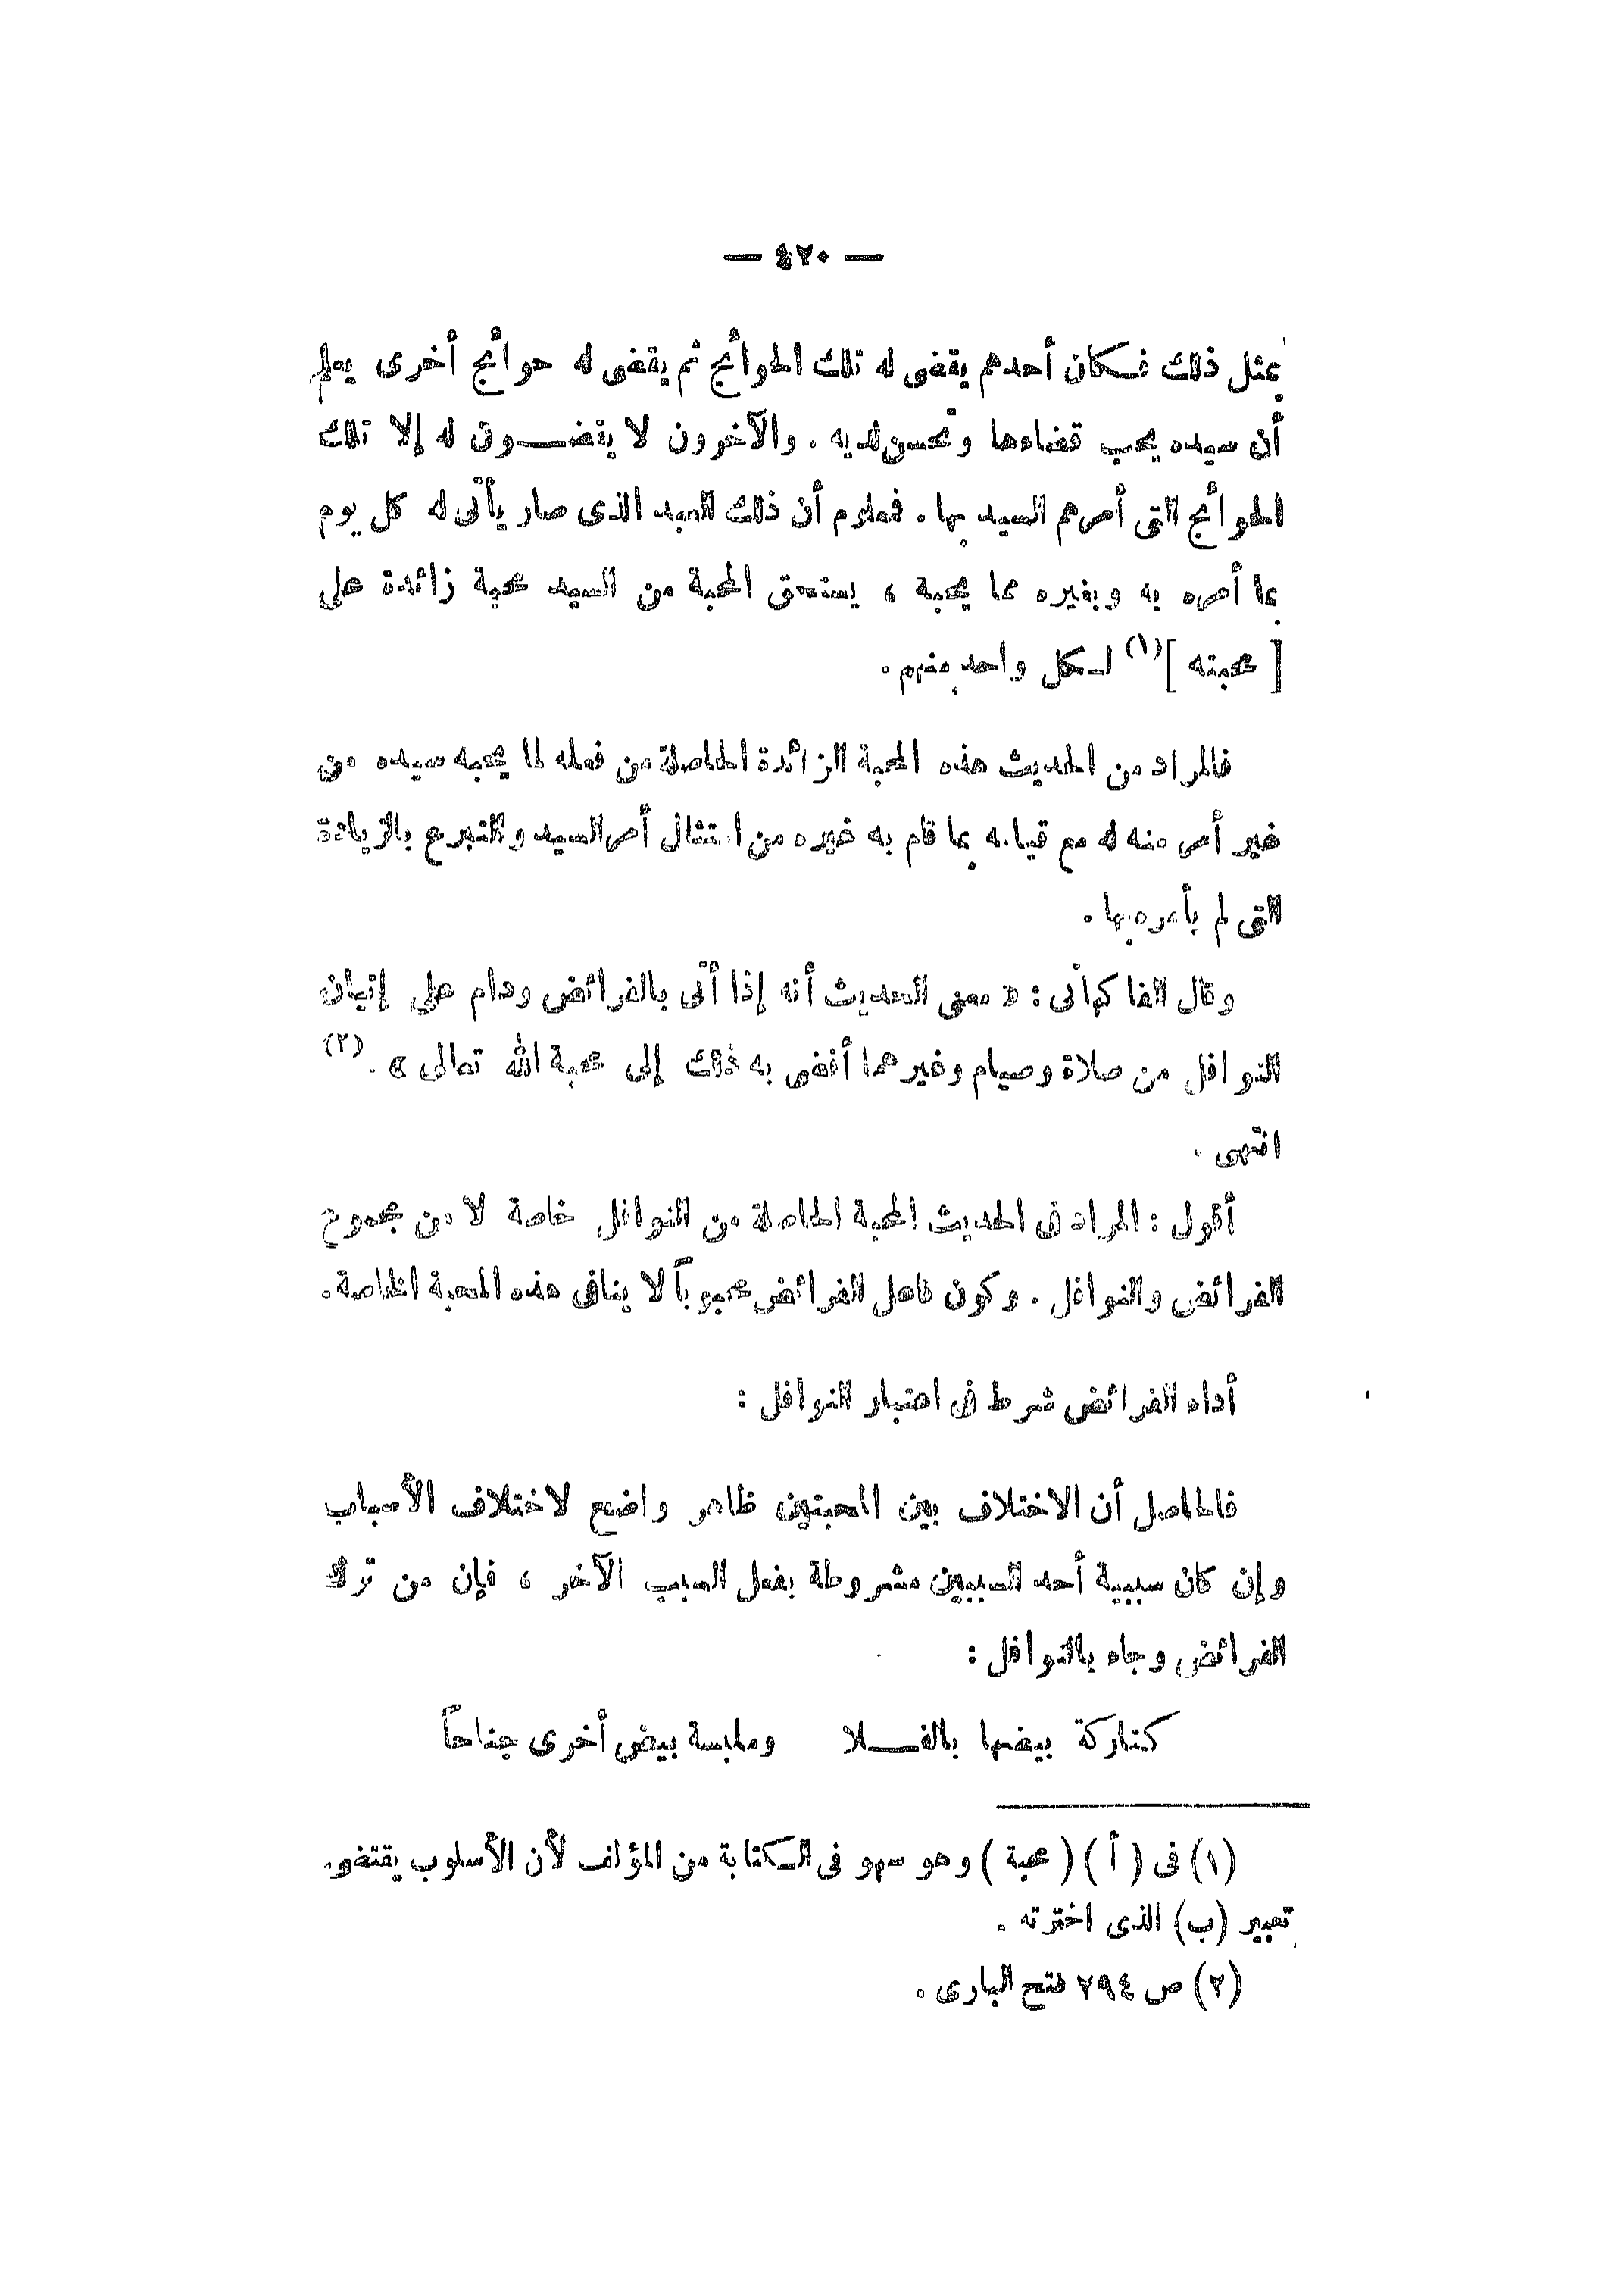 — ٤٢٠ —
بمثل ذلك فكان أحدهم يقضى له تلك الحوائج ثم يقضى له حوائج أخرى يعلم
أن سيده يحب قضاءها وتحسن لديه . والآخرون لا يقضون له إلا تلك
الحوائج التى أمرهم السيد بها . فمعلوم أن ذلك العبد الذى صار يأتى له كل يوم
بما أمره به وبغيره مما يحبه ، يستحق المحبة من السيد محبة زائدة على
[ محبته ] (١) لكل واحد منهم .
فالمراد من الحديث هذه المحبة الزائدة الحاصلة من فعله لما يحبه سيده من
غير أمر منه له مع قيامه بما قام به غيره من امتثال أمر السيد والتبرع بالزيادة
التى لم يأمره بها .
وقال الفاكهانى : « معنى الحديث أنه إذا أتى بالفرائض ودام على إتيان
النوافل من صلاة وصيام وغيرهما أفضى به ذلك إلى محبة الله تعالى » . (٢)
انتهى .
أقول : المراد فى الحديث المحبة الحاصلة من النوافل خاصة لا من مجموع
الفرائض والنوافل . وكون فاعل الفرائض محبوباً لا ينافى هذه المحبة الخاصة .
أداء الفرائض شرط فى اعتبار النوافل :
فالحاصل أن الاختلاف بين المحبتين ظاهر واضح لاختلاف الأسباب
وإن كان سببية أحد السببين مشروطة بفعل السبب الآخر ، فإن من ترك
الفرائض وجاء بالنوافل :
كتاركة بيضها بالفلا وملبسة بيض أخرى جناحاً
(١) فى ( أ ) ( محبة ) وهو سهو فى الكتابة من المؤلف لأن الأسلوب يقتضى
تعبير (ب) الذى اخترته .
(٢) ص ٢٩٤ فتح البارى .